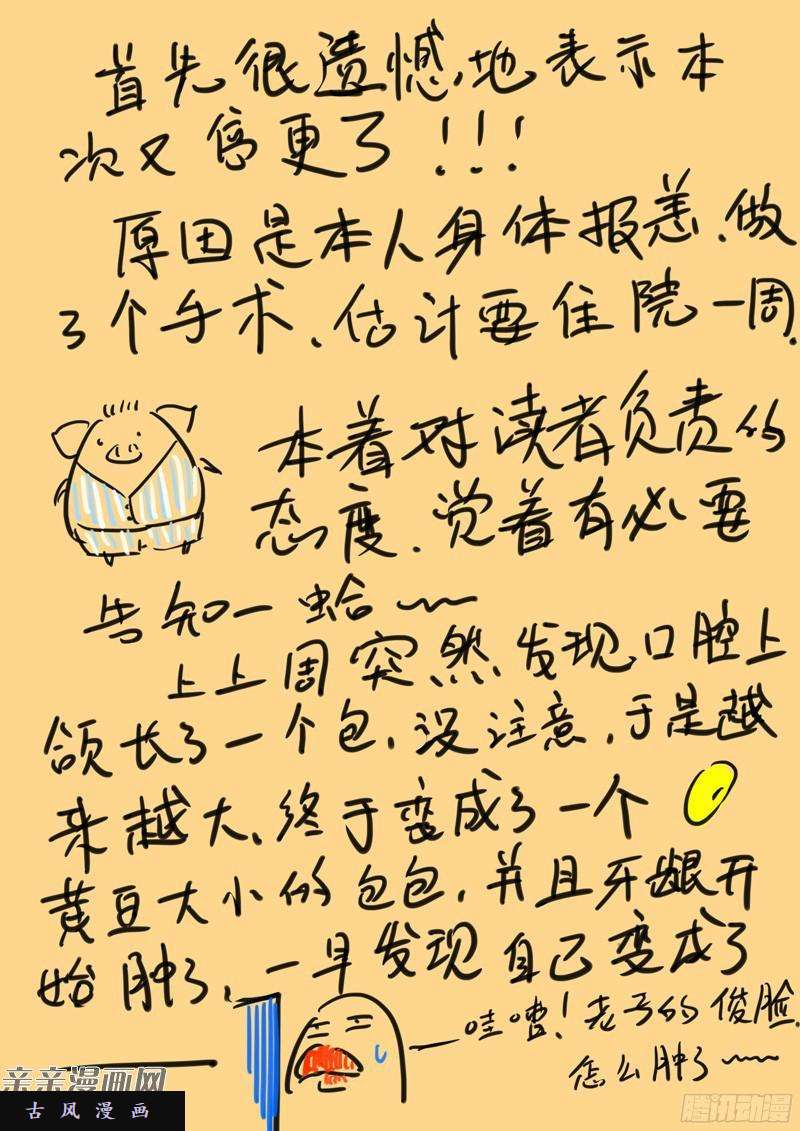 首先很遗憾地表示本
次又停更了!!!
原因是本人身体报恙.做
了个手术.估计要住院一周.
本着对读者负责的
态度.觉着有必要
告知一蛤~~
上上周突然发现口腔上
颌长了一个包.没注意.于是越
来越大.终于变成了一个
黄豆大小的包包.并且牙龈开
始肿了.一早发现自己变成了
哇嘈!老子的俊脸.
怎么肿了~~
亲亲漫画网
古风漫画
腾讯动漫